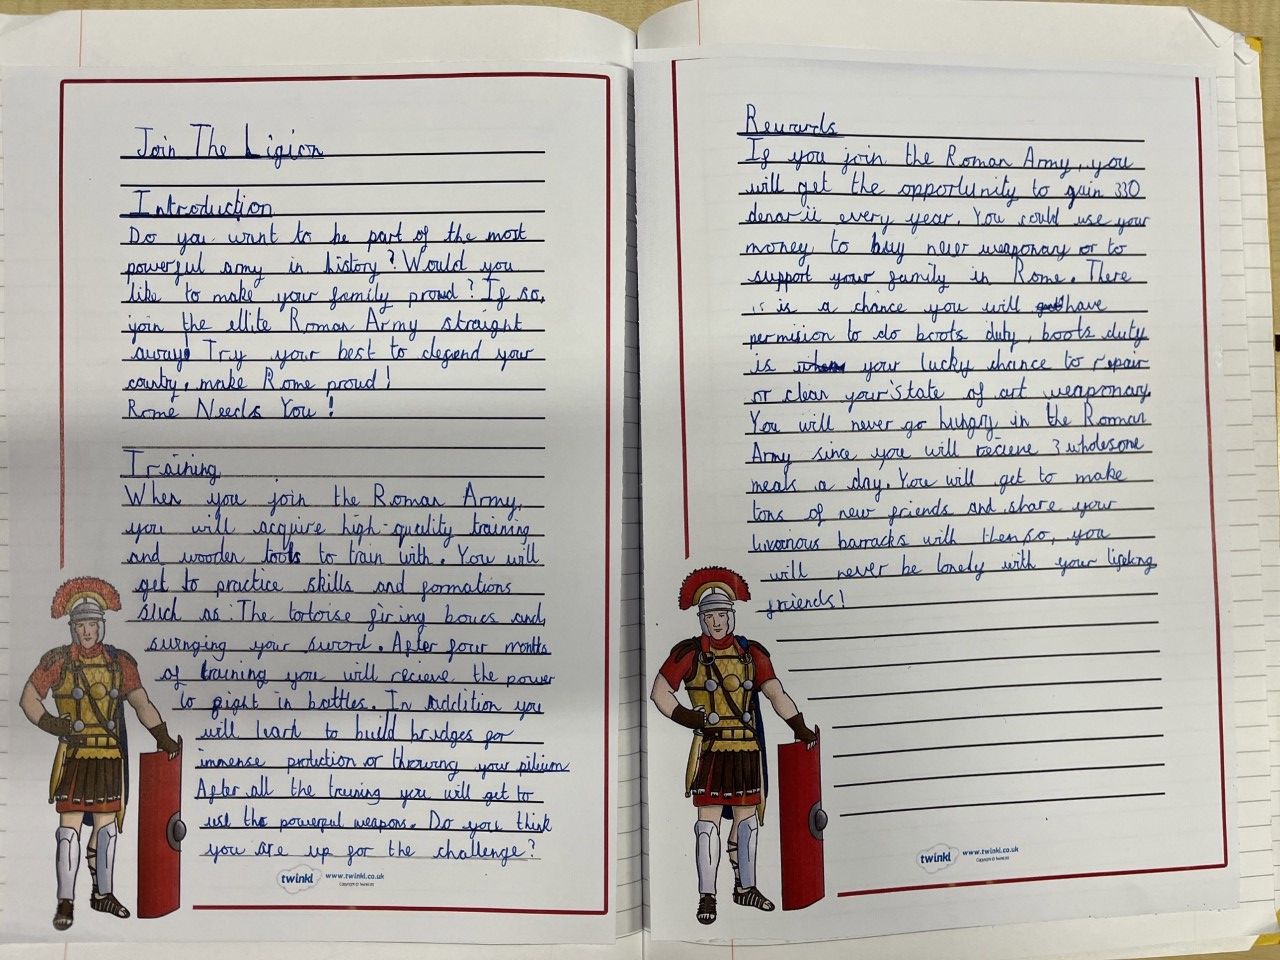 Join The Ligion
Introduction
Do you want to be part of the most
powerful army in history? Would you
like to make your family proud? If so,
join the ellite Roman Army straight
away! Try your best to defend your
country, make Rome proud!
Rome Needs You!
Training
When you join the Roman Army,
you will acquire high-quality training
and wooden tools to train with. You will
get to practice skills and formations
such as: The tortoise firing bows and
swinging your sword. After four months
of training you will recieve the power
to fight in battles. In addition you
will learn to build bridges for
immense protection or throwing your pilium
After all the training you will get to
use the powerful weapons. Do you think
you are up for the challenge?
twinkl www.twinkl.co.uk
Rewards
If you join the Roman Army, you
will get the opportunity to gain 330
denarii every year. You could use your
money to buy newer weaponary or to
support your family in Rome. There
is a chance you will have
permision to do boots duty, boots duty
is your lucky chance to repair
or clean your state of art weaponary.
You will never go hungry in the Roman
Army since you will recieve 3 wholesome
meals a day. You will get to make
tons of new friends and share your
barracks with them so, you
will never be lonely with your lifelong
friends!
twinkl www.twinkl.co.uk